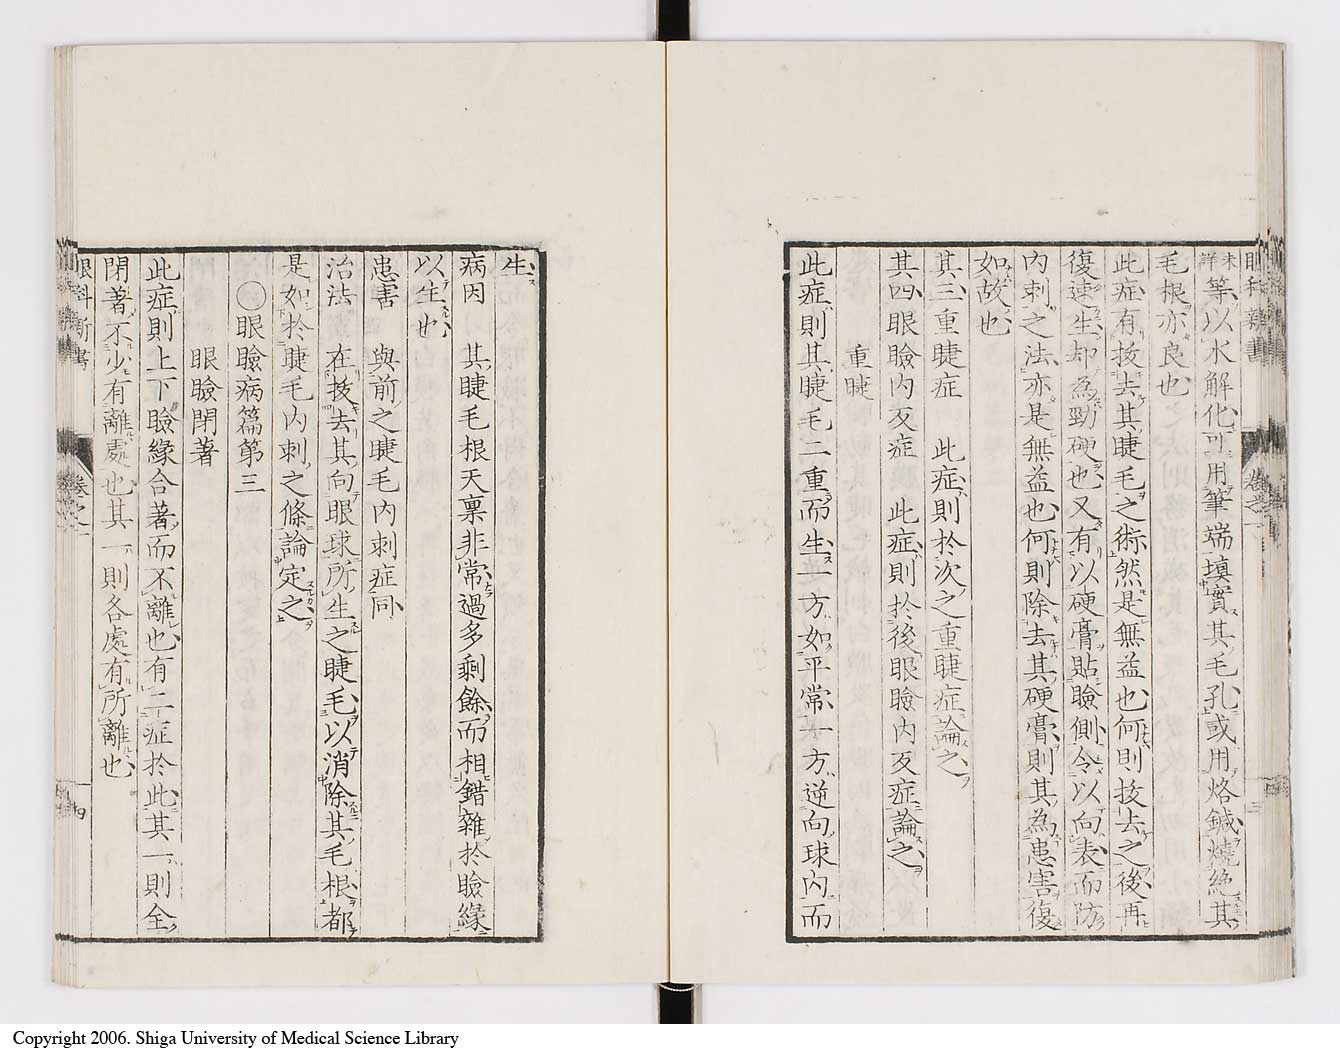 眼科新書
卷之一
三
未詳等以水解化可用筆端填實其毛孔或用烙鍼燒絶其
毛根亦良也
此症有拔去其睫毛之術然是無益也何則拔去之後再
復速生却為勁硬也又有以硬膏貼瞼側令以向表而防
内刺之法亦是無益也何則除去其硬膏則其為患害復
如故也
其三重睫症　此症則於次之重睫症論之
其四眼瞼内反症　此症則於後眼瞼内反症論之
重睫
此症則其睫毛二重而生一方如平常一方逆向球内而
生
病因　其睫毛根天稟非常過多剩餘而相錯雜於瞼緣
以生也
患害　與前之睫毛内刺症同
治法　在拔去其向眼球所生之睫毛以消除其毛根都
是如於睫毛内刺之條論定之
○眼瞼病篇第三
眼瞼閉著
此症則上下瞼緣合著而不離也有二症於此其一則全
閉著不少有離處也其一則各處有所離也
眼科新書
卷之一
四
Copyright 2006. Shiga University of Medical Science Library